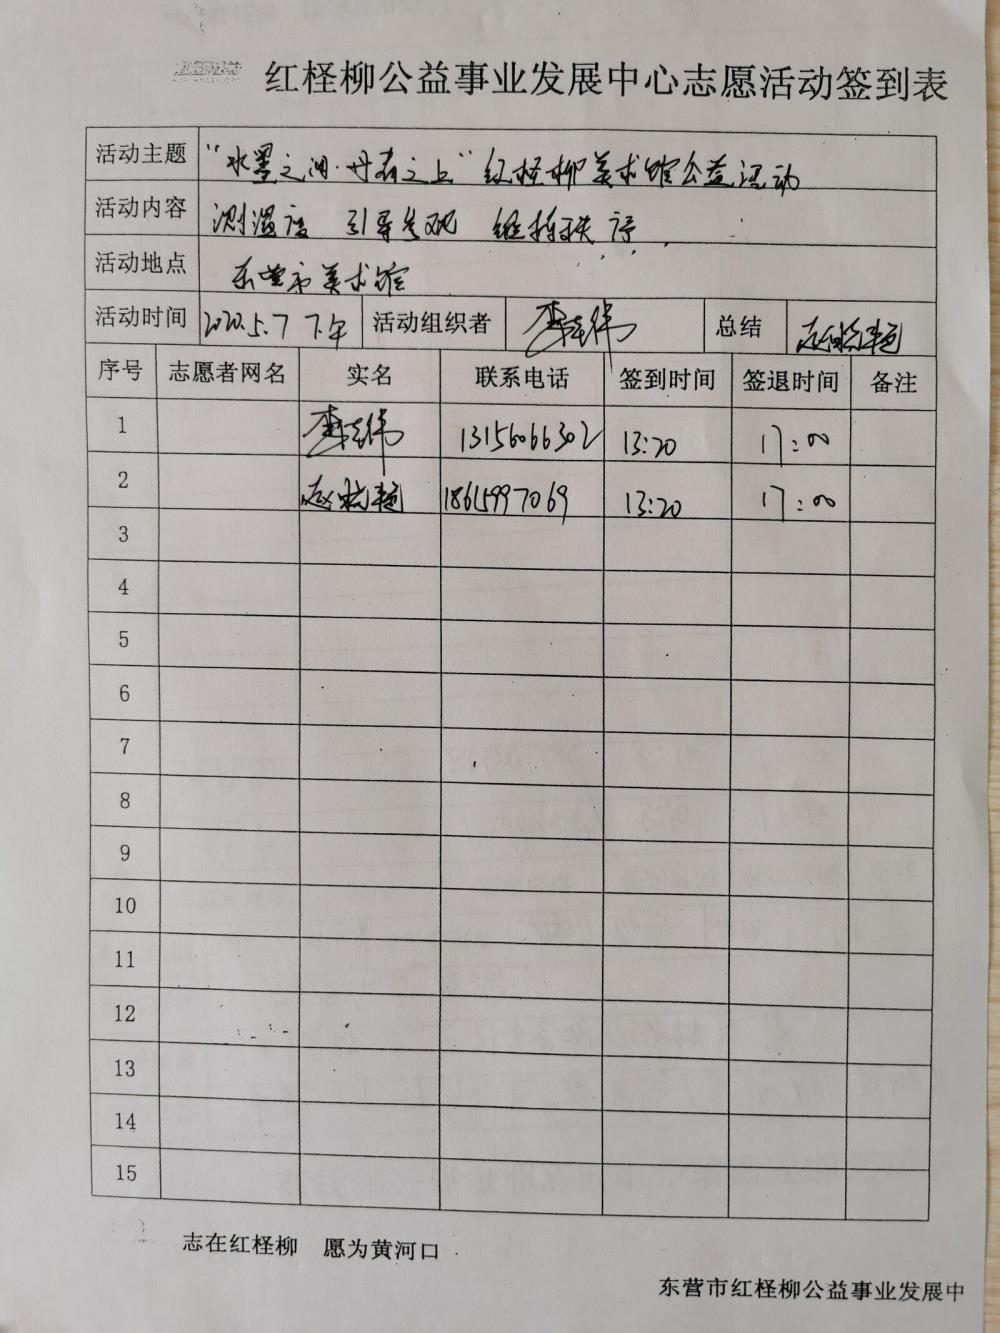 红柽柳公益事业发展中心志愿活动签到表
活动主题 "水墨之间·丹青之上"红柽柳美术馆公益活动
活动内容 测温度 引导参观 维持秩序
活动地点 东营市美术馆
活动时间 2020.5.7 下午 活动组织者 李志伟 总结
序号 志愿者网名 实名 联系电话 签到时间 签退时间 备注
1 李志伟 13156066302 13:20 17:00
2 18615997069 13:20 17:00
3
4
5
6
7
8
9
10
11
12
13
14
15
志在红柽柳 愿为黄河口
东营市红柽柳公益事业发展中